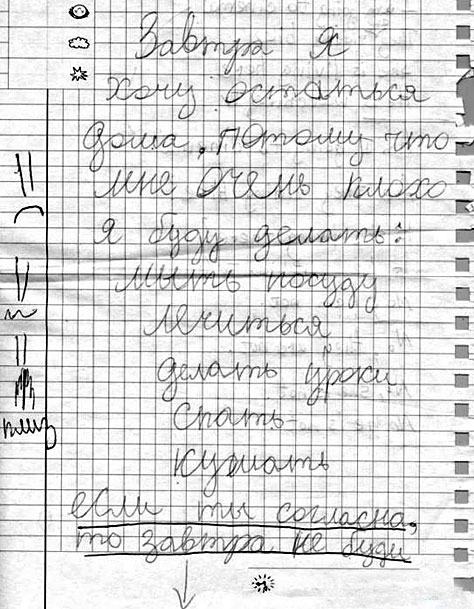 Завтра я
хочу остаться
дома, потому что
мне очень плохо
я буду делать:
мыть посуду
лечиться
делать уроки
спать
кушать
если ты согласна,
то завтра не буди
плиз